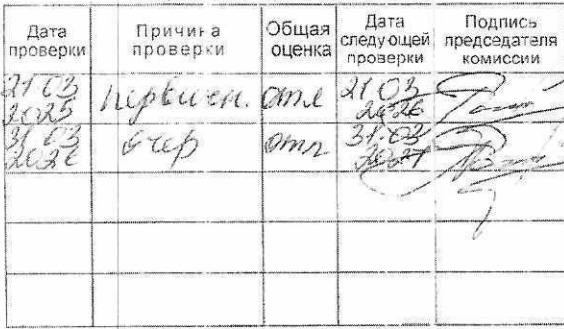 Дата проверки
Причина проверки
Общая оценка
Дата следующей проверки
Подпись председателя комиссии
21 03 2025
первичн.
отл
21.03 2026
31 03 2026
очер
отл
31.03 2027